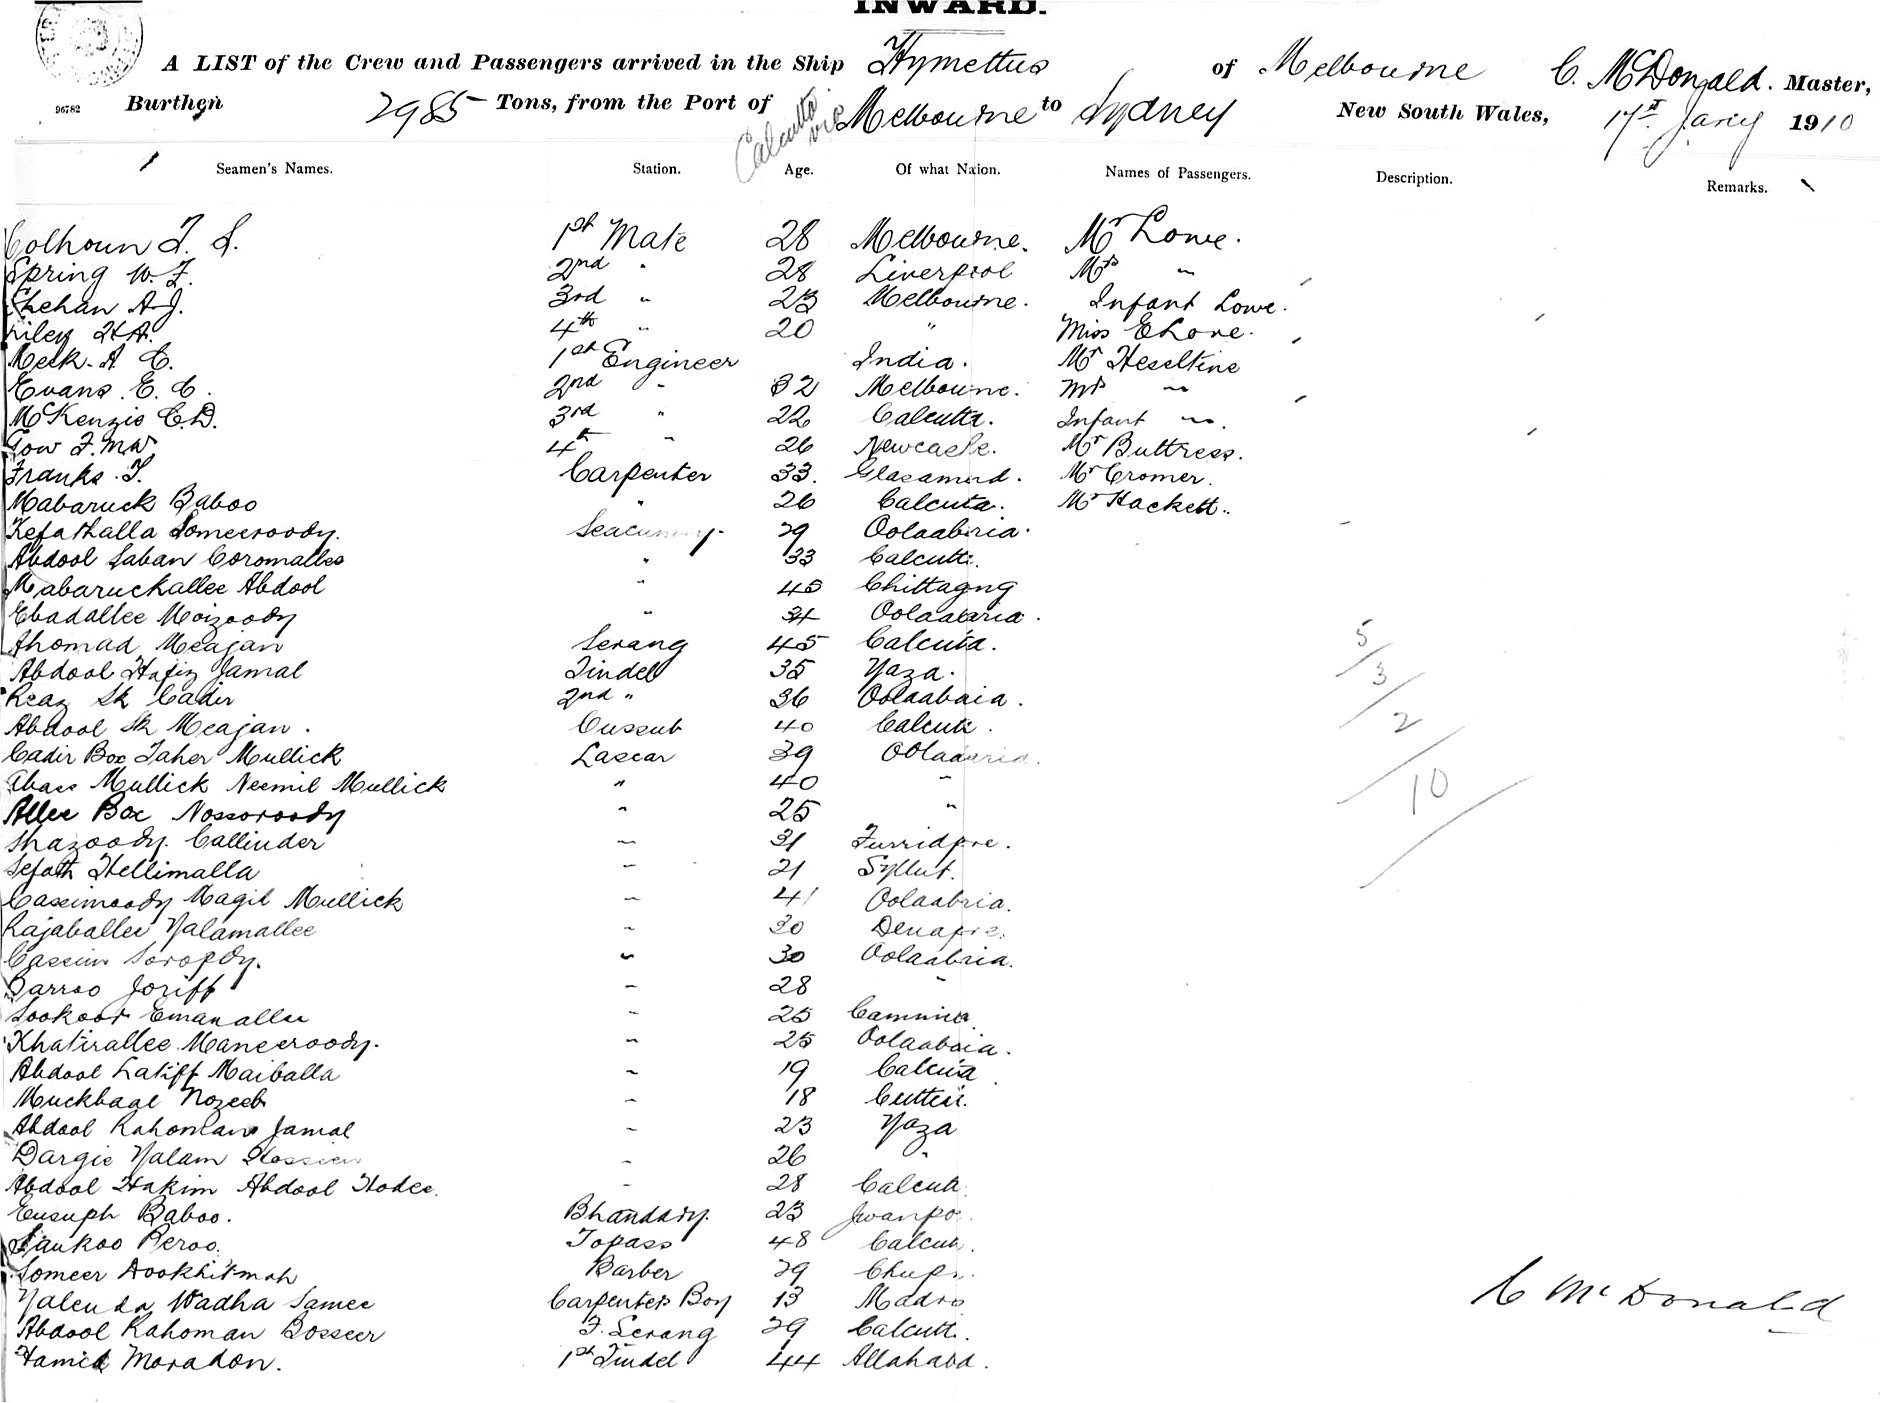 INWARD.
A LIST of the Crew and Passengers arrived in the Ship Hymettus of Melbourne C. McDonald. Master,
96782 Burthen 2985 Tons, from the Port of Calcutta via Melbourne to Sydney New South Wales, 17th Jany 1910
Seamen's Names. Station. Age. Of what Nation. Names of Passengers. Description. Remarks.
Colhoun T. S. 1st Mate 28 Melbourne. Mr Lowe.
Spring W. F. 2nd " 28 Liverpool Mrs "
Shehan A. J. 3rd " 23 Melbourne. Infant Lowe.
Riley H A. 4th " 20 " Miss E Lowe.
Meek. A C. 1st Engineer India. Mr Heseltine
Evans. E. C. 2nd " 32 Melbourne. Mrs "
McKenzie C. D. 3rd " 22 Calcutta. Infant ".
Gow F. 4th " 26 Newcastle. Mr Buttress.
Franks. T. Carpenter 33. Mr Cromer.
Mabaruck Baboo " 26 Calcutta. Mr Hackett.
Kefathalla Someeroody. Seacunny. 29 Oolaabria.
Abdool Saban Coromallee " 33 Calcutta.
Mabaruckallee Abdool " 45 Chittagng
Ebadallee Moizoody " 34 Oolaabria.
Ahomad Meajan Serang 45 Calcutta.
Abdool Hafiz Jamal Tindel 35 Yaza. 5/
Reaz Sk Cadir 2nd " 36 Oolaabria. 3/
Abdool Sk Meajan. Cussub 40 Calcutta. 2
Cadir Box Taher Mullick Lascar 39 Oolaabria.
Abass Mullick Neemil Mullick " 40 " 10
Allee Box Nossoroody " 25 "
Shazoody. Callinder " 31 Furridpre.
Sefath Hellimalla " 21 Syllut.
Cassimoody Magil Mullick " 41 Oolaabria.
Rajaballee Yalamallee " 30
Cassim Soropdy. " 30 Oolaabria.
Barroo Joriff " 28 "
Sookoor Emanallee " 25
Khatirallee Maneeroody. " 25 Oolaabria.
Abdool Latiff Maiballa " 19 Calcutta.
Muckbage Nozeeb " 18
Abdool Rahoman Jamal " 23 Yaza
Dargie Yalam Hossien " 26 "
Abdool Hakim Abdool Hodee. " 28 Calcutta.
Eusuph Baboo. Bhandary. 23
Jankoo Peroo. Topass 48 Calcutta.
Someer Dookhitmah Barber 29
Wadha Samee Carpenters Boy 13 Madras
Abdool Rahoman Bosseer F. Serang 29 Calcutta.
Hamid Moradon. 1st Tindel 44 Allahabad.
C McDonald